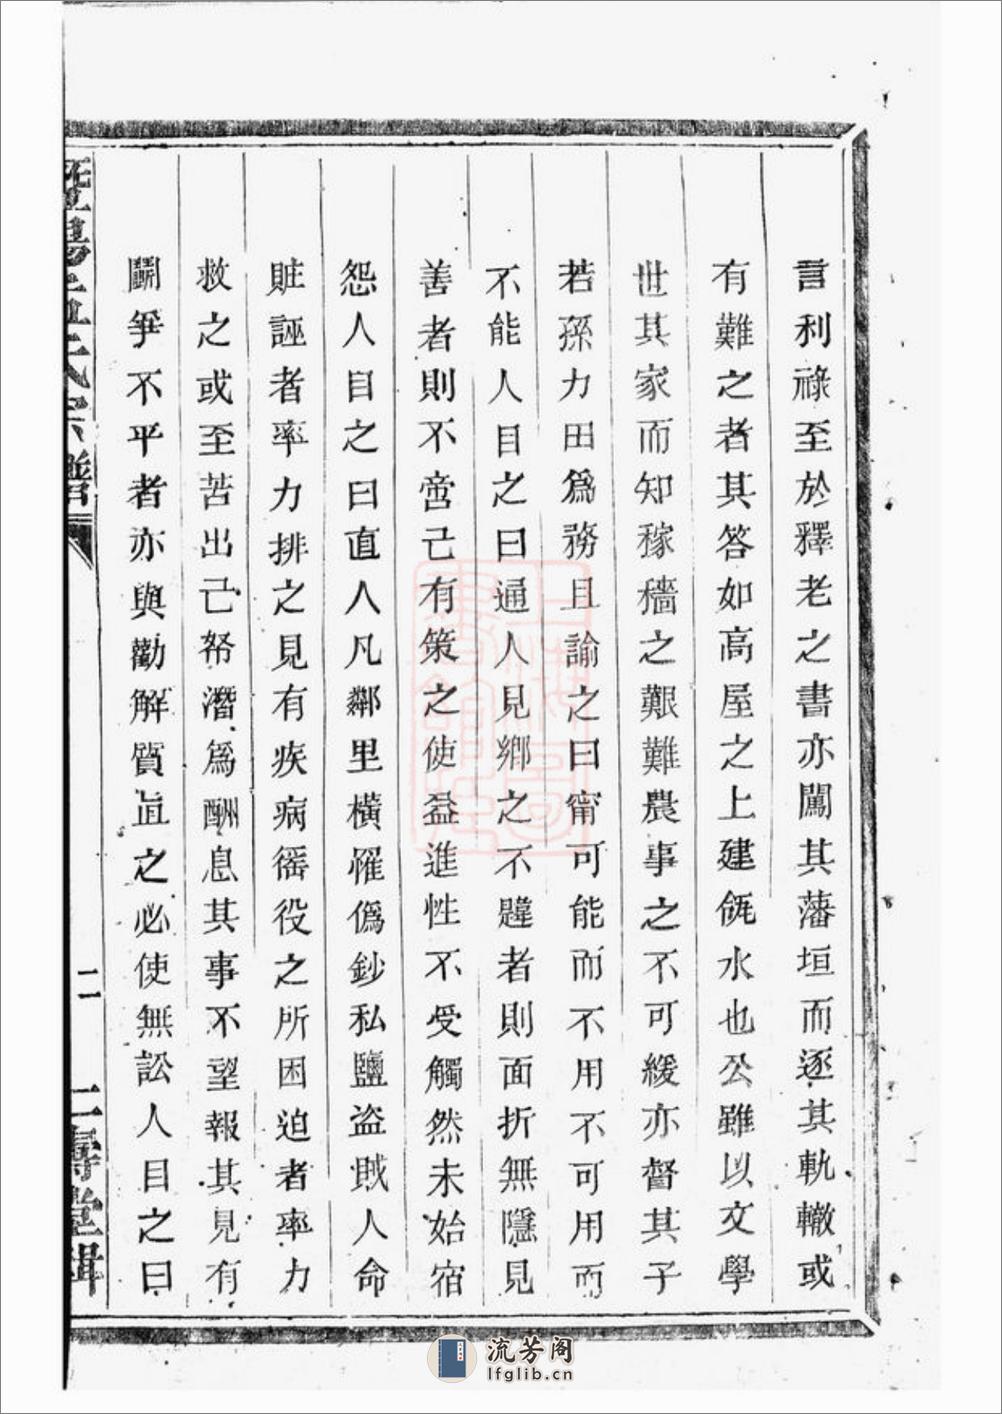 言利祿至於釋老之書亦闖其藩垣而逐其軌轍或
有難之者其答如高屋之上建瓴水也公雖以文學
世其家而知稼穡之艱難農事之不可緩亦督其子
若孫力田爲務且諭之曰甯可能而不用不可用而
不能人目之曰通人見鄉之不韙者則面折無隱見
善者則不啻己有策之使益進性不受觸然未始宿
怨人目之曰直人凡鄰里橫罹僞鈔私鹽盜賊人命
賍誣者率力排之見有疾病徭役之所困迫者率力
救之或至苦出己帑潛爲酬息其事不望報其見有
鬭爭不平者亦與勸解質直之必使無訟人目之曰
氏宗譜
二
壽堂輯
流芳阁
lfglib.cn